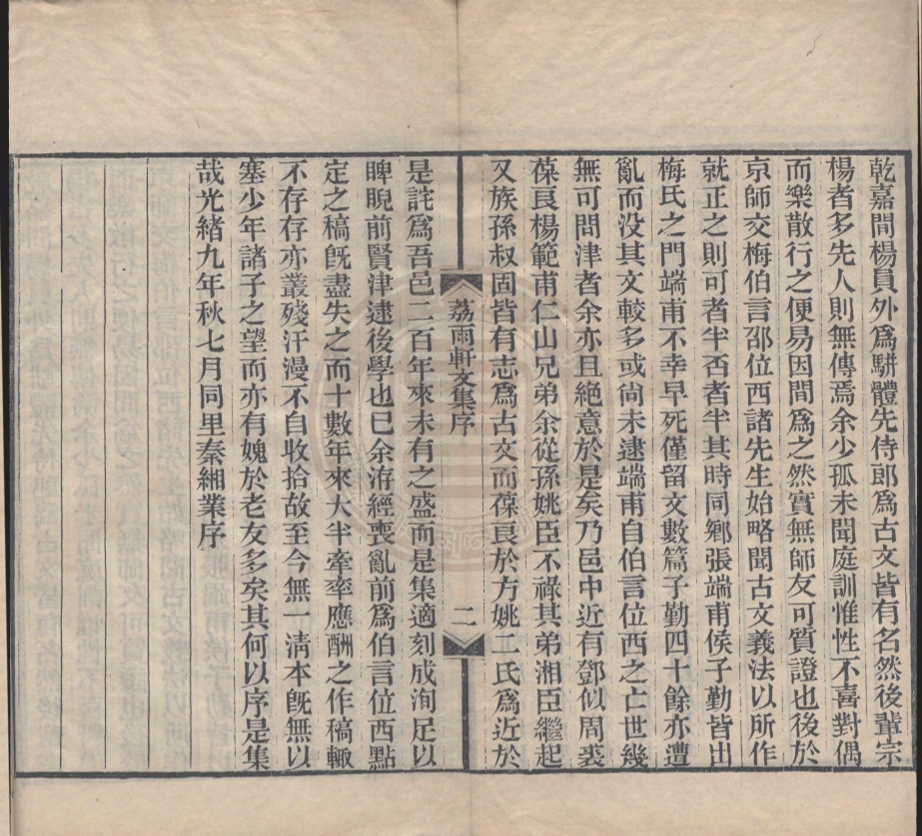 乾嘉間楊員外爲駢體先侍郎爲古文皆有名然後輩宗
楊者多先人則無傳焉余少孤未聞庭訓惟性不喜對偶
而樂散行之便易因間爲之然實無師友可質證也後於
京師交梅伯言邵位西諸先生始略聞古文義法以所作
就正之則可者半否者半其時同鄉張端甫侯子勤皆出
梅氏之門端甫不幸早死僅留文數篇子勤四十餘亦遭
亂而没其文較多或尙未逮端甫自伯言位西之亡世幾
無可問津者余亦且絕意於是矣乃邑中近有鄧似周裘
葆良楊範甫仁山兄弟余從孫姚臣不祿其弟湘臣繼起
又族孫叔固皆有志爲古文而葆良於方姚二氏爲近於
荔雨軒文集序
二
是詫爲吾邑二百年來未有之盛而是集適刻成洵足以
睥睨前賢津逮後學也已余洊經喪亂前爲伯言位西點
定之稿旣盡失之而十數年來大半牽率應酬之作稿輒
不存存亦叢殘汗漫不自收拾故至今無一淸本旣無以
塞少年諸子之望而亦有媿於老友多矣其何以序是集
哉光緒九年秋七月同里秦緗業序